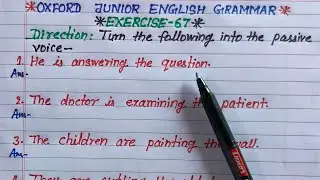 *OXFORD JUNIOR ENGLISH GRAMMAR*
*EXERCISE-67*
Direction: Turn the following into the passive
voice-
1. He is answering the question.
Ans-
2. The doctor is examining the patient.
Ans-
3. The children are painting the wall.
Ans-